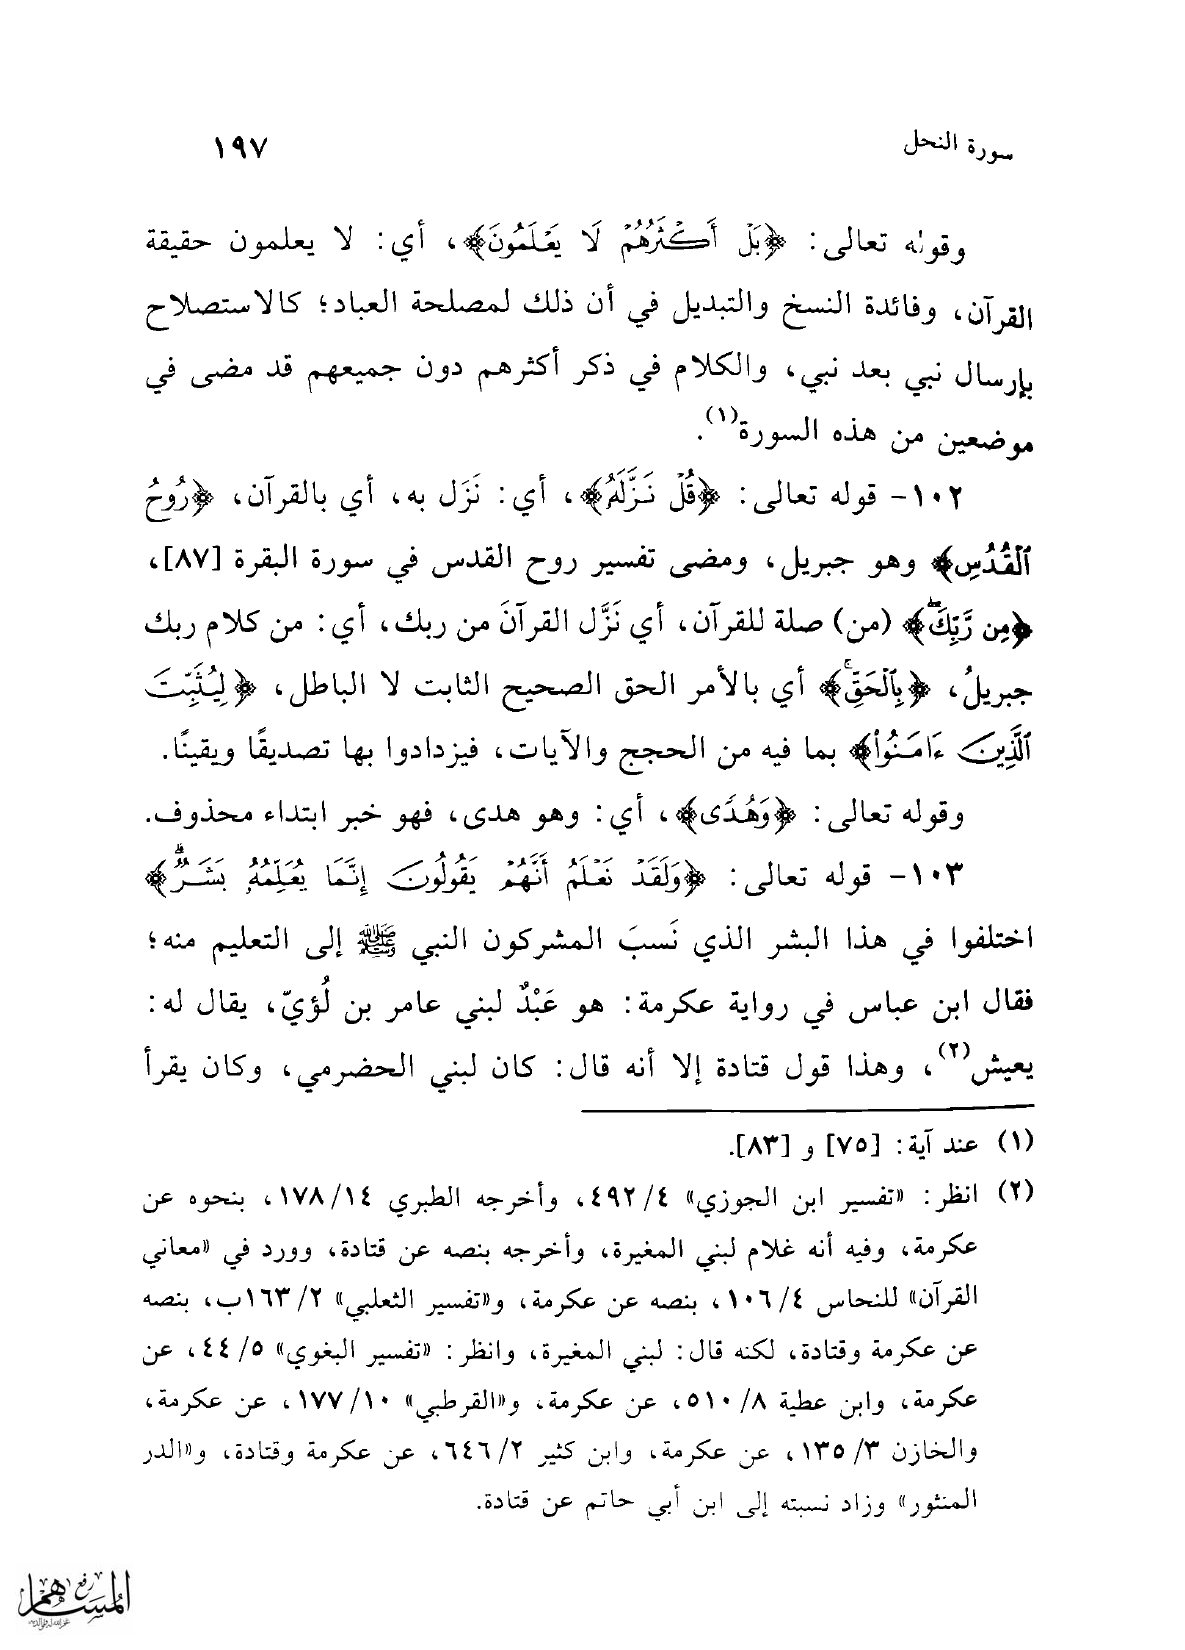 سورة النحل
١٩٧
وقوله تعالى: ﴿بَلْ أَكْثَرُهُمْ لَا يَعْلَمُونَ﴾، أي: لا يعلمون حقيقة
القرآن، وفائدة النسخ والتبديل في أن ذلك لمصلحة العباد؛ كالاستصلاح
بإرسال نبي بعد نبي، والكلام في ذكر أكثرهم دون جميعهم قد مضى في
موضعين من هذه السورة(١).
١٠٢- قوله تعالى: ﴿قُلْ نَزَّلَهُ﴾، أي: نَزَل به، أي بالقرآن، ﴿رُوحُ
ٱلْقُدُسِ﴾ وهو جبريل، ومضى تفسير روح القدس في سورة البقرة [٨٧]،
﴿مِن رَّبِّكَ﴾ (من) صلة للقرآن، أي نَزَّل القرآنَ من ربك، أي: من كلام ربك
جبريلُ، ﴿بِٱلْحَقِّ﴾ أي بالأمر الحق الصحيح الثابت لا الباطل، ﴿لِيُثَبِّتَ
ٱلَّذِينَ ءَامَنُواْ﴾ بما فيه من الحجج والآيات، فيزدادوا بها تصديقًا ويقينًا.
وقوله تعالى: ﴿وَهُدًى﴾، أي: وهو هدى، فهو خبر ابتداء محذوف.
١٠٣- قوله تعالى: ﴿وَلَقَدْ نَعْلَمُ أَنَّهُمْ يَقُولُونَ إِنَّمَا يُعَلِّمُهُۥ بَشَرٌ﴾
اختلفوا في هذا البشر الذي نَسبَ المشركون النبي ﷺ إلى التعليم منه؛
فقال ابن عباس في رواية عكرمة: هو عَبْدٌ لبني عامر بن لُؤيّ، يقال له:
يعيش(٢)، وهذا قول قتادة إلا أنه قال: كان لبني الحضرمي، وكان يقرأ
(١) عند آية: [٧٥] و [٨٣].
(٢) انظر: «تفسير ابن الجوزي» ٤/ ٤٩٢، وأخرجه الطبري ١٤/ ١٧٨، بنحوه عن
عكرمة، وفيه أنه غلام لبني المغيرة، وأخرجه بنصه عن قتادة، وورد في «معاني
القرآن» للنحاس ٤/ ١٠٦، بنصه عن عكرمة، و«تفسير الثعلبي» ٢/ ١٦٣ب، بنصه
عن عكرمة وقتادة، لكنه قال: لبني المغيرة، وانظر: «تفسير البغوي» ٥/ ٤٤، عن
عكرمة، وابن عطية ٨/ ٥١٠، عن عكرمة، و«القرطبي» ١٠/ ١٧٧، عن عكرمة،
والخازن ٣/ ١٣٥، عن عكرمة، وابن كثير ٢/ ٦٤٦، عن عكرمة وقتادة، و«الدر
المنثور» وزاد نسبته إلى ابن أبي حاتم عن قتادة.